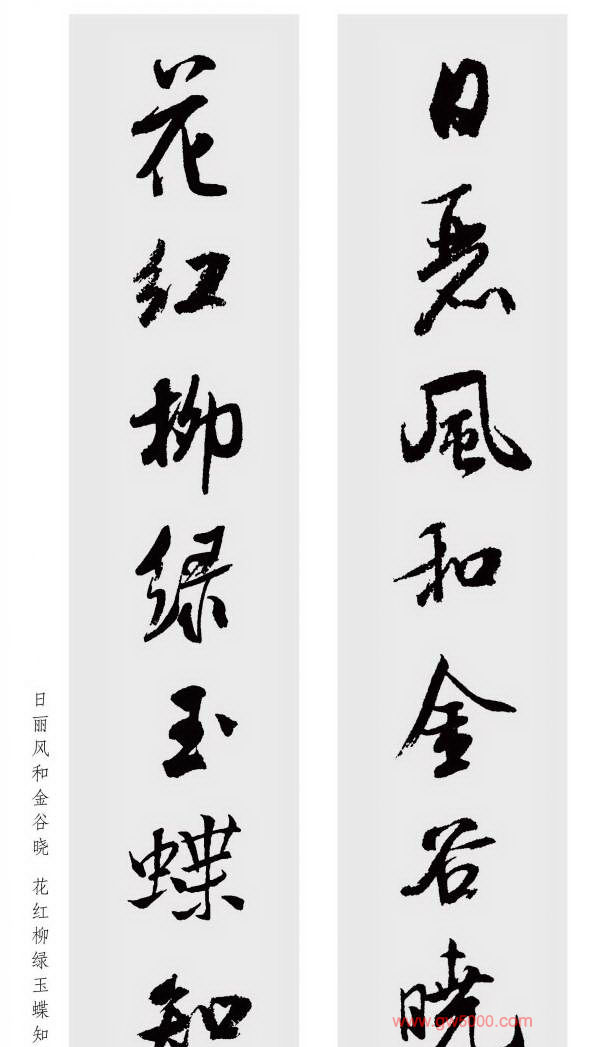 日麗風和金谷曉
花紅柳綠玉蝶知
日丽风和金谷晓 花红柳绿玉蝶知
www.gw5000.com